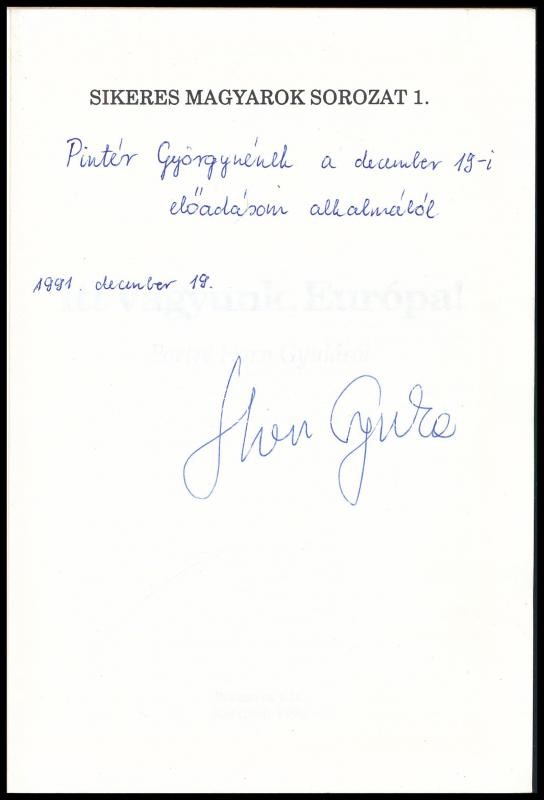 SIKERES MAGYAROK SOROZAT 1.
Pintér Györgynének a december 19-i
előadásom alkalmából
1991. december 19.
Itt vagyunk, Európa!
Portré Horn Gyuláról
Horn Gyula